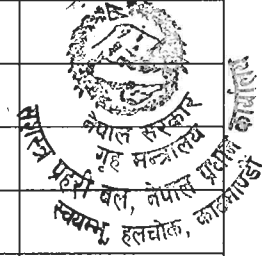 नेपाल सरकार
गृह मन्त्रालय
सशस्त्र प्रहरी बल, नेपाल प्रधान कार्यालय
स्वयम्भू, हलचोक, काठमाण्डौ